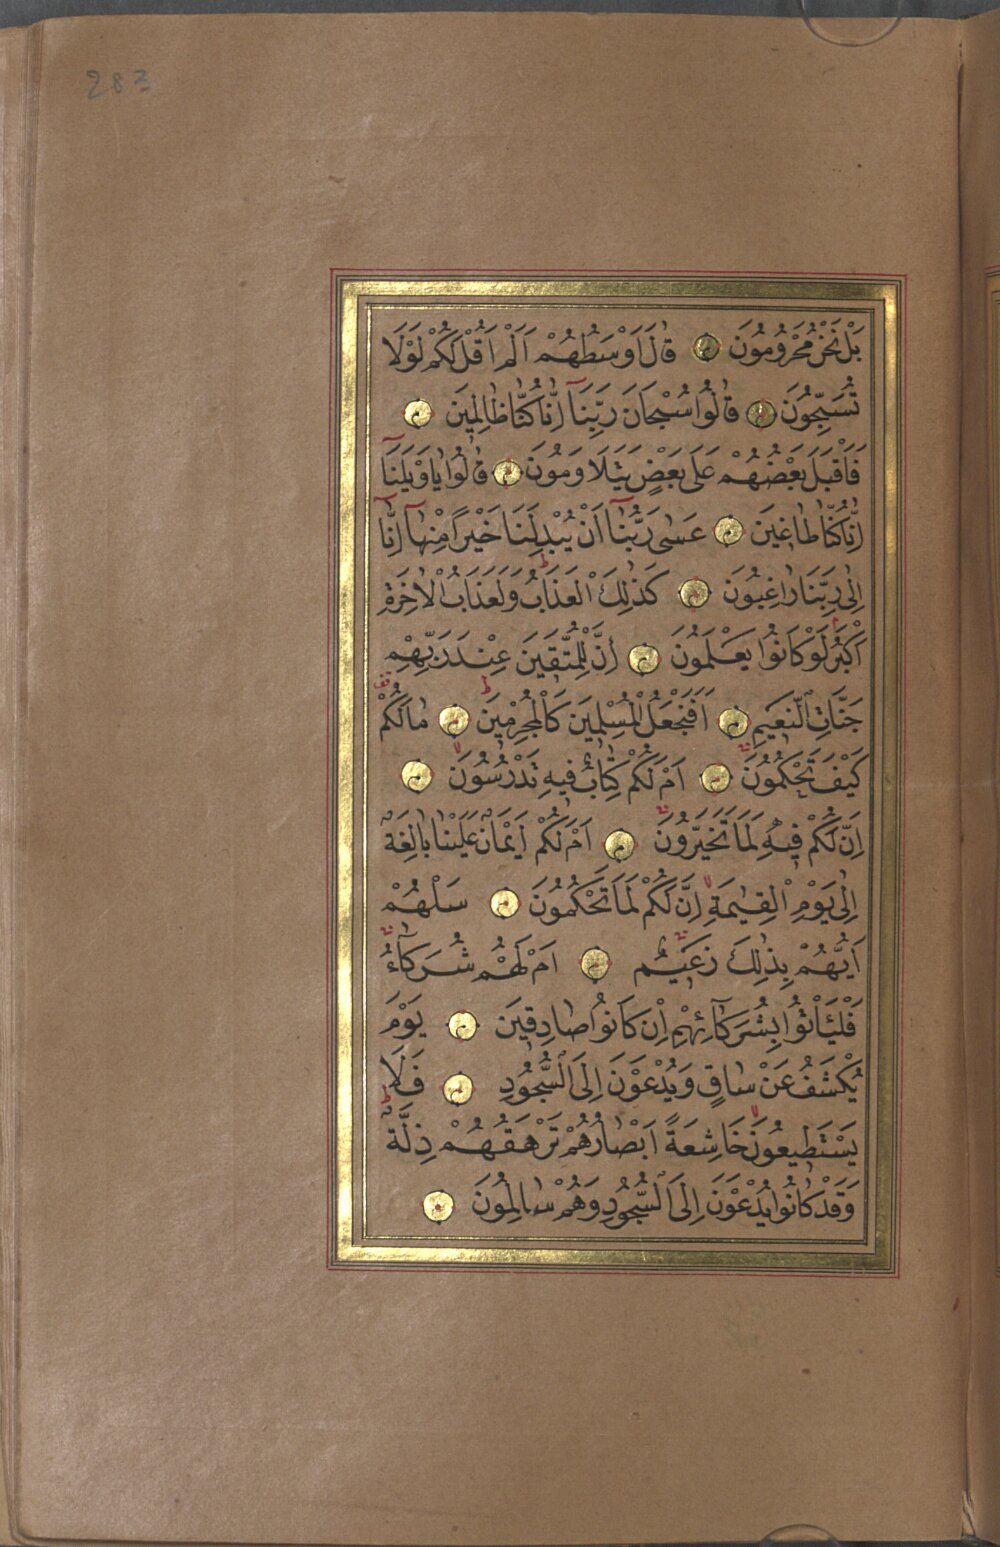 283
بَلْ نَحْنُ مَحْرُومُونَ قَالَ اَوْسَطُهُمْ اَلَمْ اَقُلْ لَكُمْ لَوْلَا
تُسَبِّحُونَ قَالُوا سُبْحَانَ رَبِّنَٓا اِنَّا كُنَّا ظَالِمِينَ
فَاَقْبَلَ بَعْضُهُمْ عَلٰى بَعْضٍ يَتَلَاوَمُونَ قَالُوا يَاوَيْلَنَٓا
اِنَّا كُنَّا طَاغِينَ عَسٰى رَبُّنَٓا اَنْ يُبْدِلَنَا خَيْرًا مِنْهَٓا اِنَّٓا
اِلٰى رَبِّنَا رَاغِبُونَ كَذٰلِكَ الْعَذَابُ وَلَعَذَابُ الْاٰخِرَةِ
اَكْبَرُ لَوْ كَانُوا يَعْلَمُونَ اِنَّ لِلْمُتَّقِينَ عِنْدَ رَبِّهِمْ
جَنَّاتِ النَّعِيمِ اَفَنَجْعَلُ الْمُسْلِمِينَ كَالْمُجْرِمِينَ مَالَكُمْ
كَيْفَ تَحْكُمُونَ اَمْ لَكُمْ كِتَابٌ فِيهِ تَدْرُسُونَ
اِنَّ لَكُمْ فِيهِ لَمَا تَخَيَّرُونَ اَمْ لَكُمْ اَيْمَانٌ عَلَيْنَا بَالِغَةٌ
اِلٰى يَوْمِ الْقِيٰمَةِ اِنَّ لَكُمْ لَمَا تَحْكُمُونَ سَلْهُمْ
اَيُّهُمْ بِذٰلِكَ زَعِيمٌ اَمْ لَهُمْ شُرَكَٓاءُ
فَلْيَأْتُوا بِشُرَكَٓائِهِمْ اِنْ كَانُوا صَادِقِينَ يَوْمَ
يُكْشَفُ عَنْ سَاقٍ وَيُدْعَوْنَ اِلَى السُّجُودِ فَلَا
يَسْتَطِيعُونَ خَاشِعَةً اَبْصَارُهُمْ تَرْهَقُهُمْ ذِلَّةٌ
وَقَدْ كَانُوا يُدْعَوْنَ اِلَى السُّجُودِ وَهُمْ سَالِمُونَ